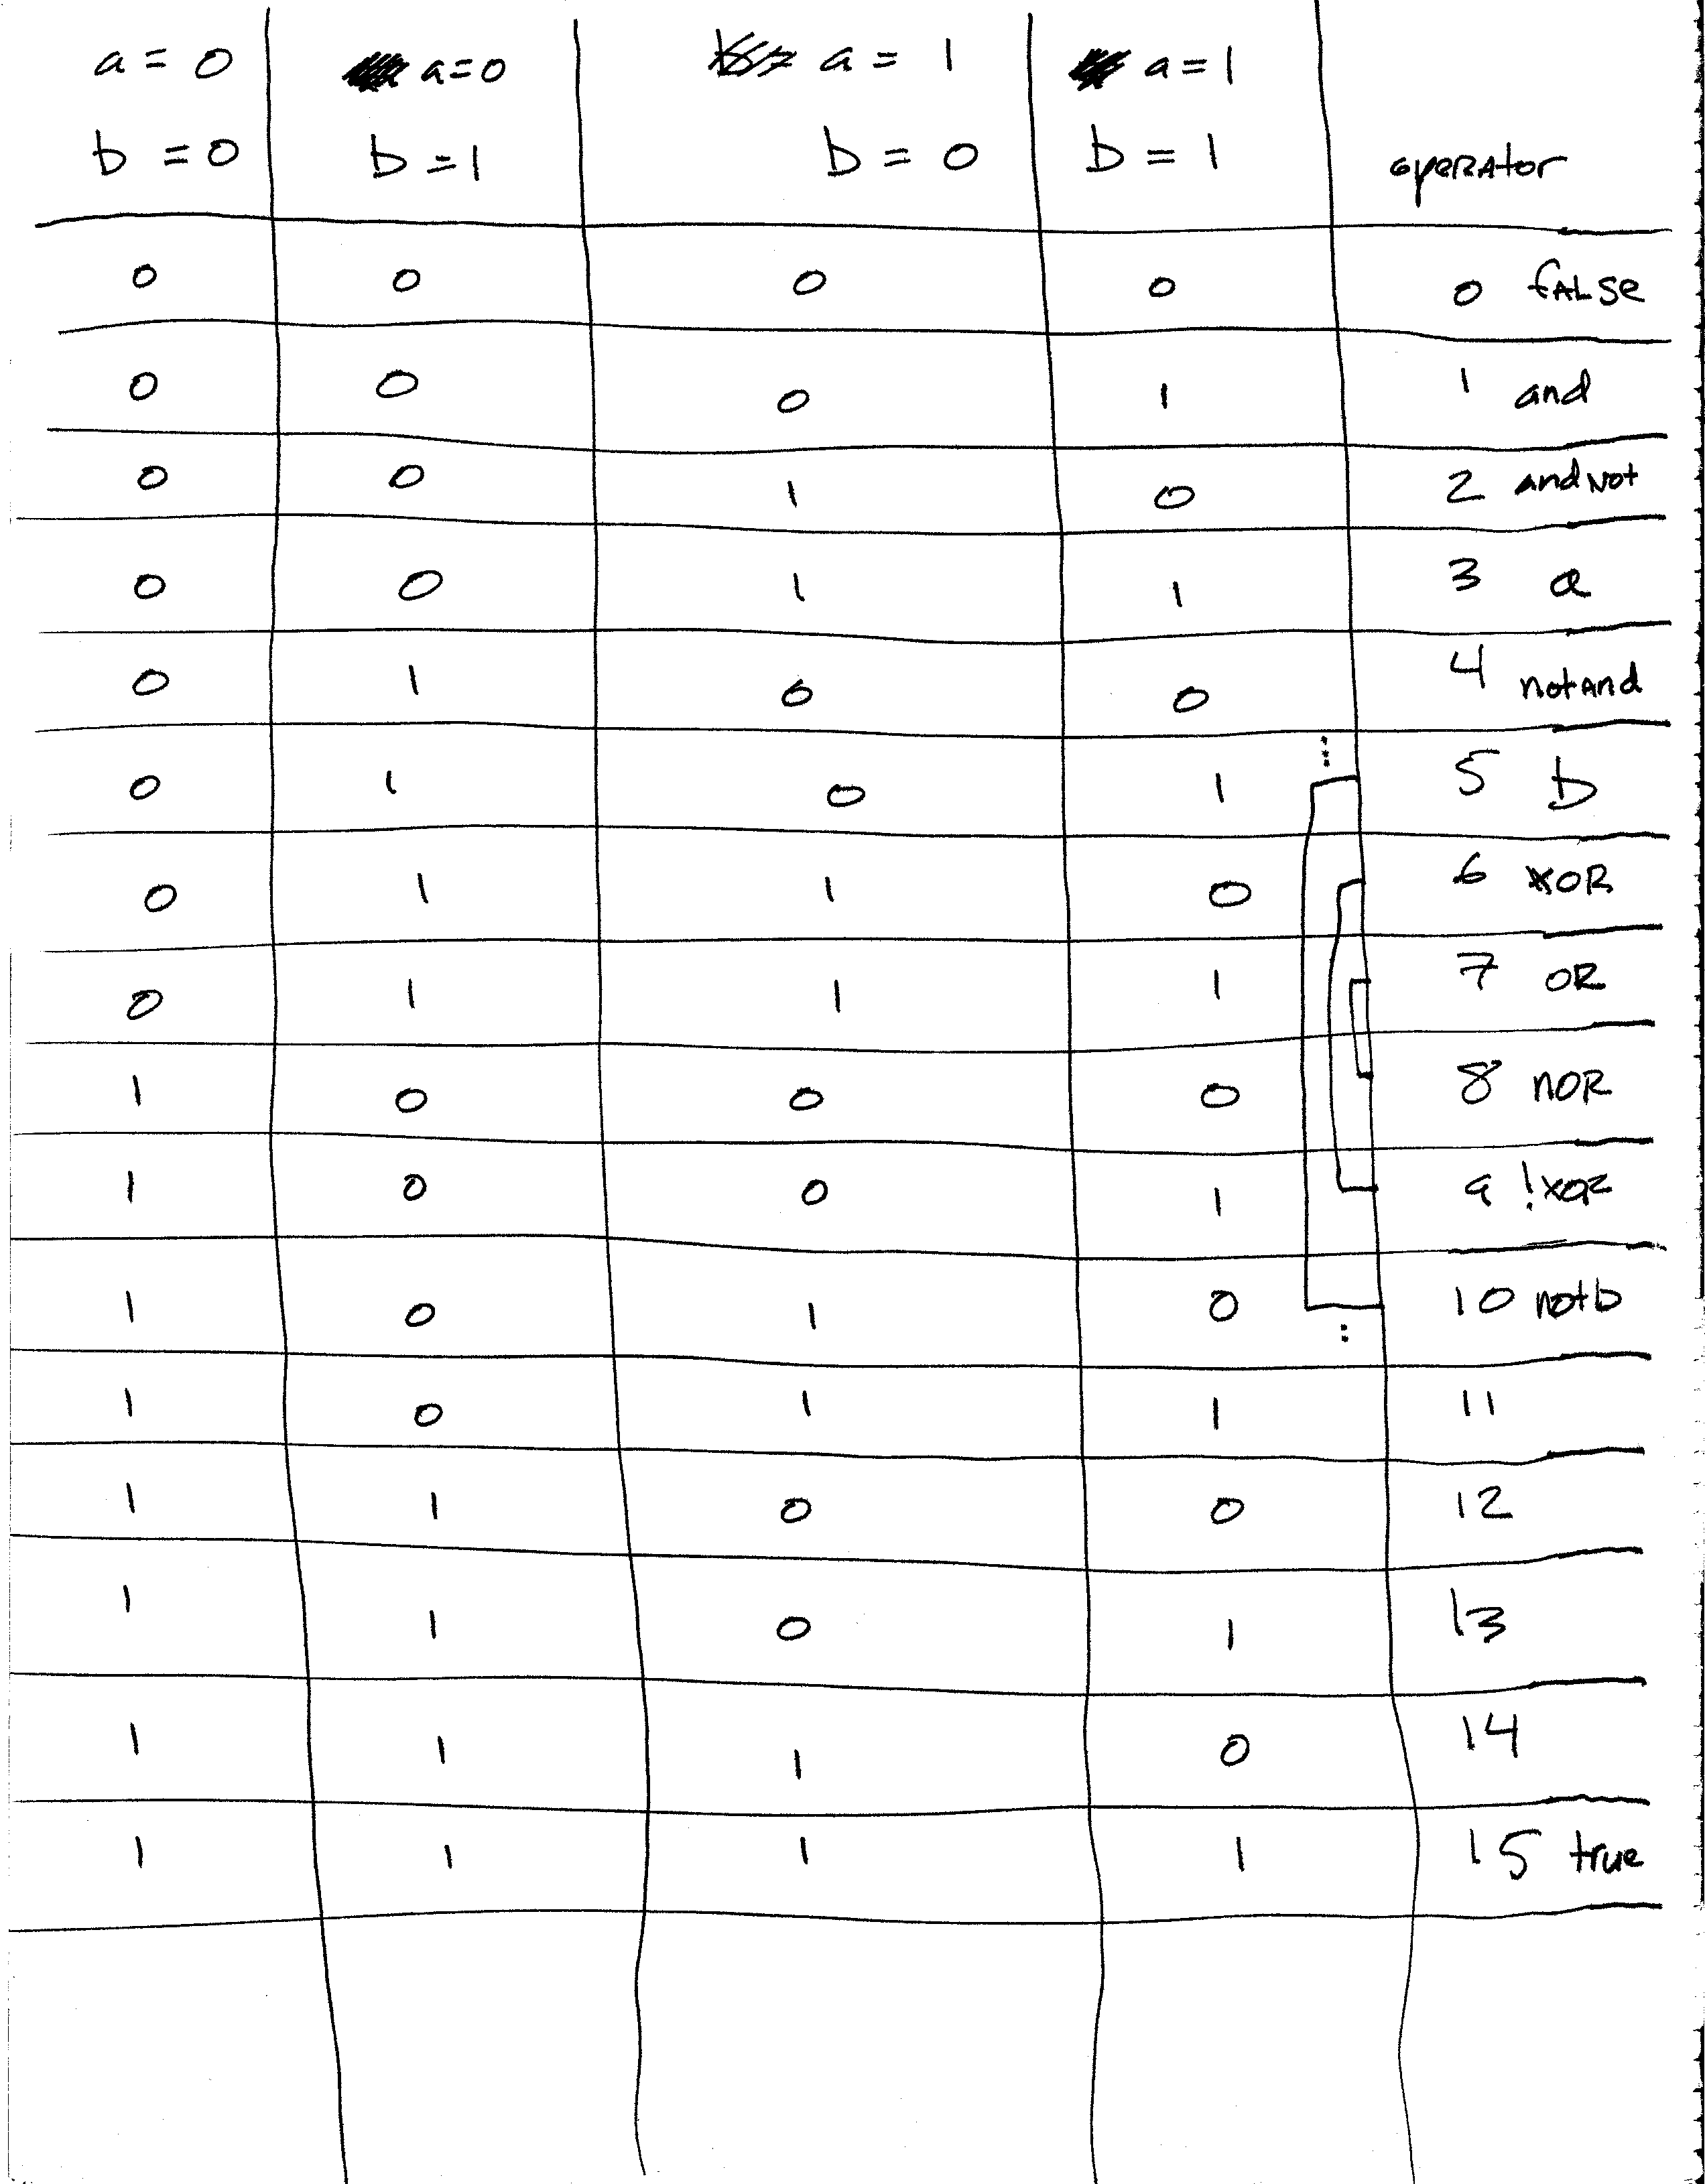 a = 0 a=0 a = 1 a=1
b = 0 b=1 b = 0 b = 1 operator
0 0 0 0 0 false
0 0 0 1 1 and
0 0 1 0 2 andnot
0 0 1 1 3 a
0 1 0 0 4 notand
0 1 0 1 5 b
0 1 1 0 6 xOR
0 1 1 1 7 OR
1 0 0 0 8 nOR
1 0 0 1 9 !xor
1 0 1 0 10 notb
1 0 1 1 11
1 1 0 0 12
1 1 0 1 13
1 1 1 0 14
1 1 1 1 15 true